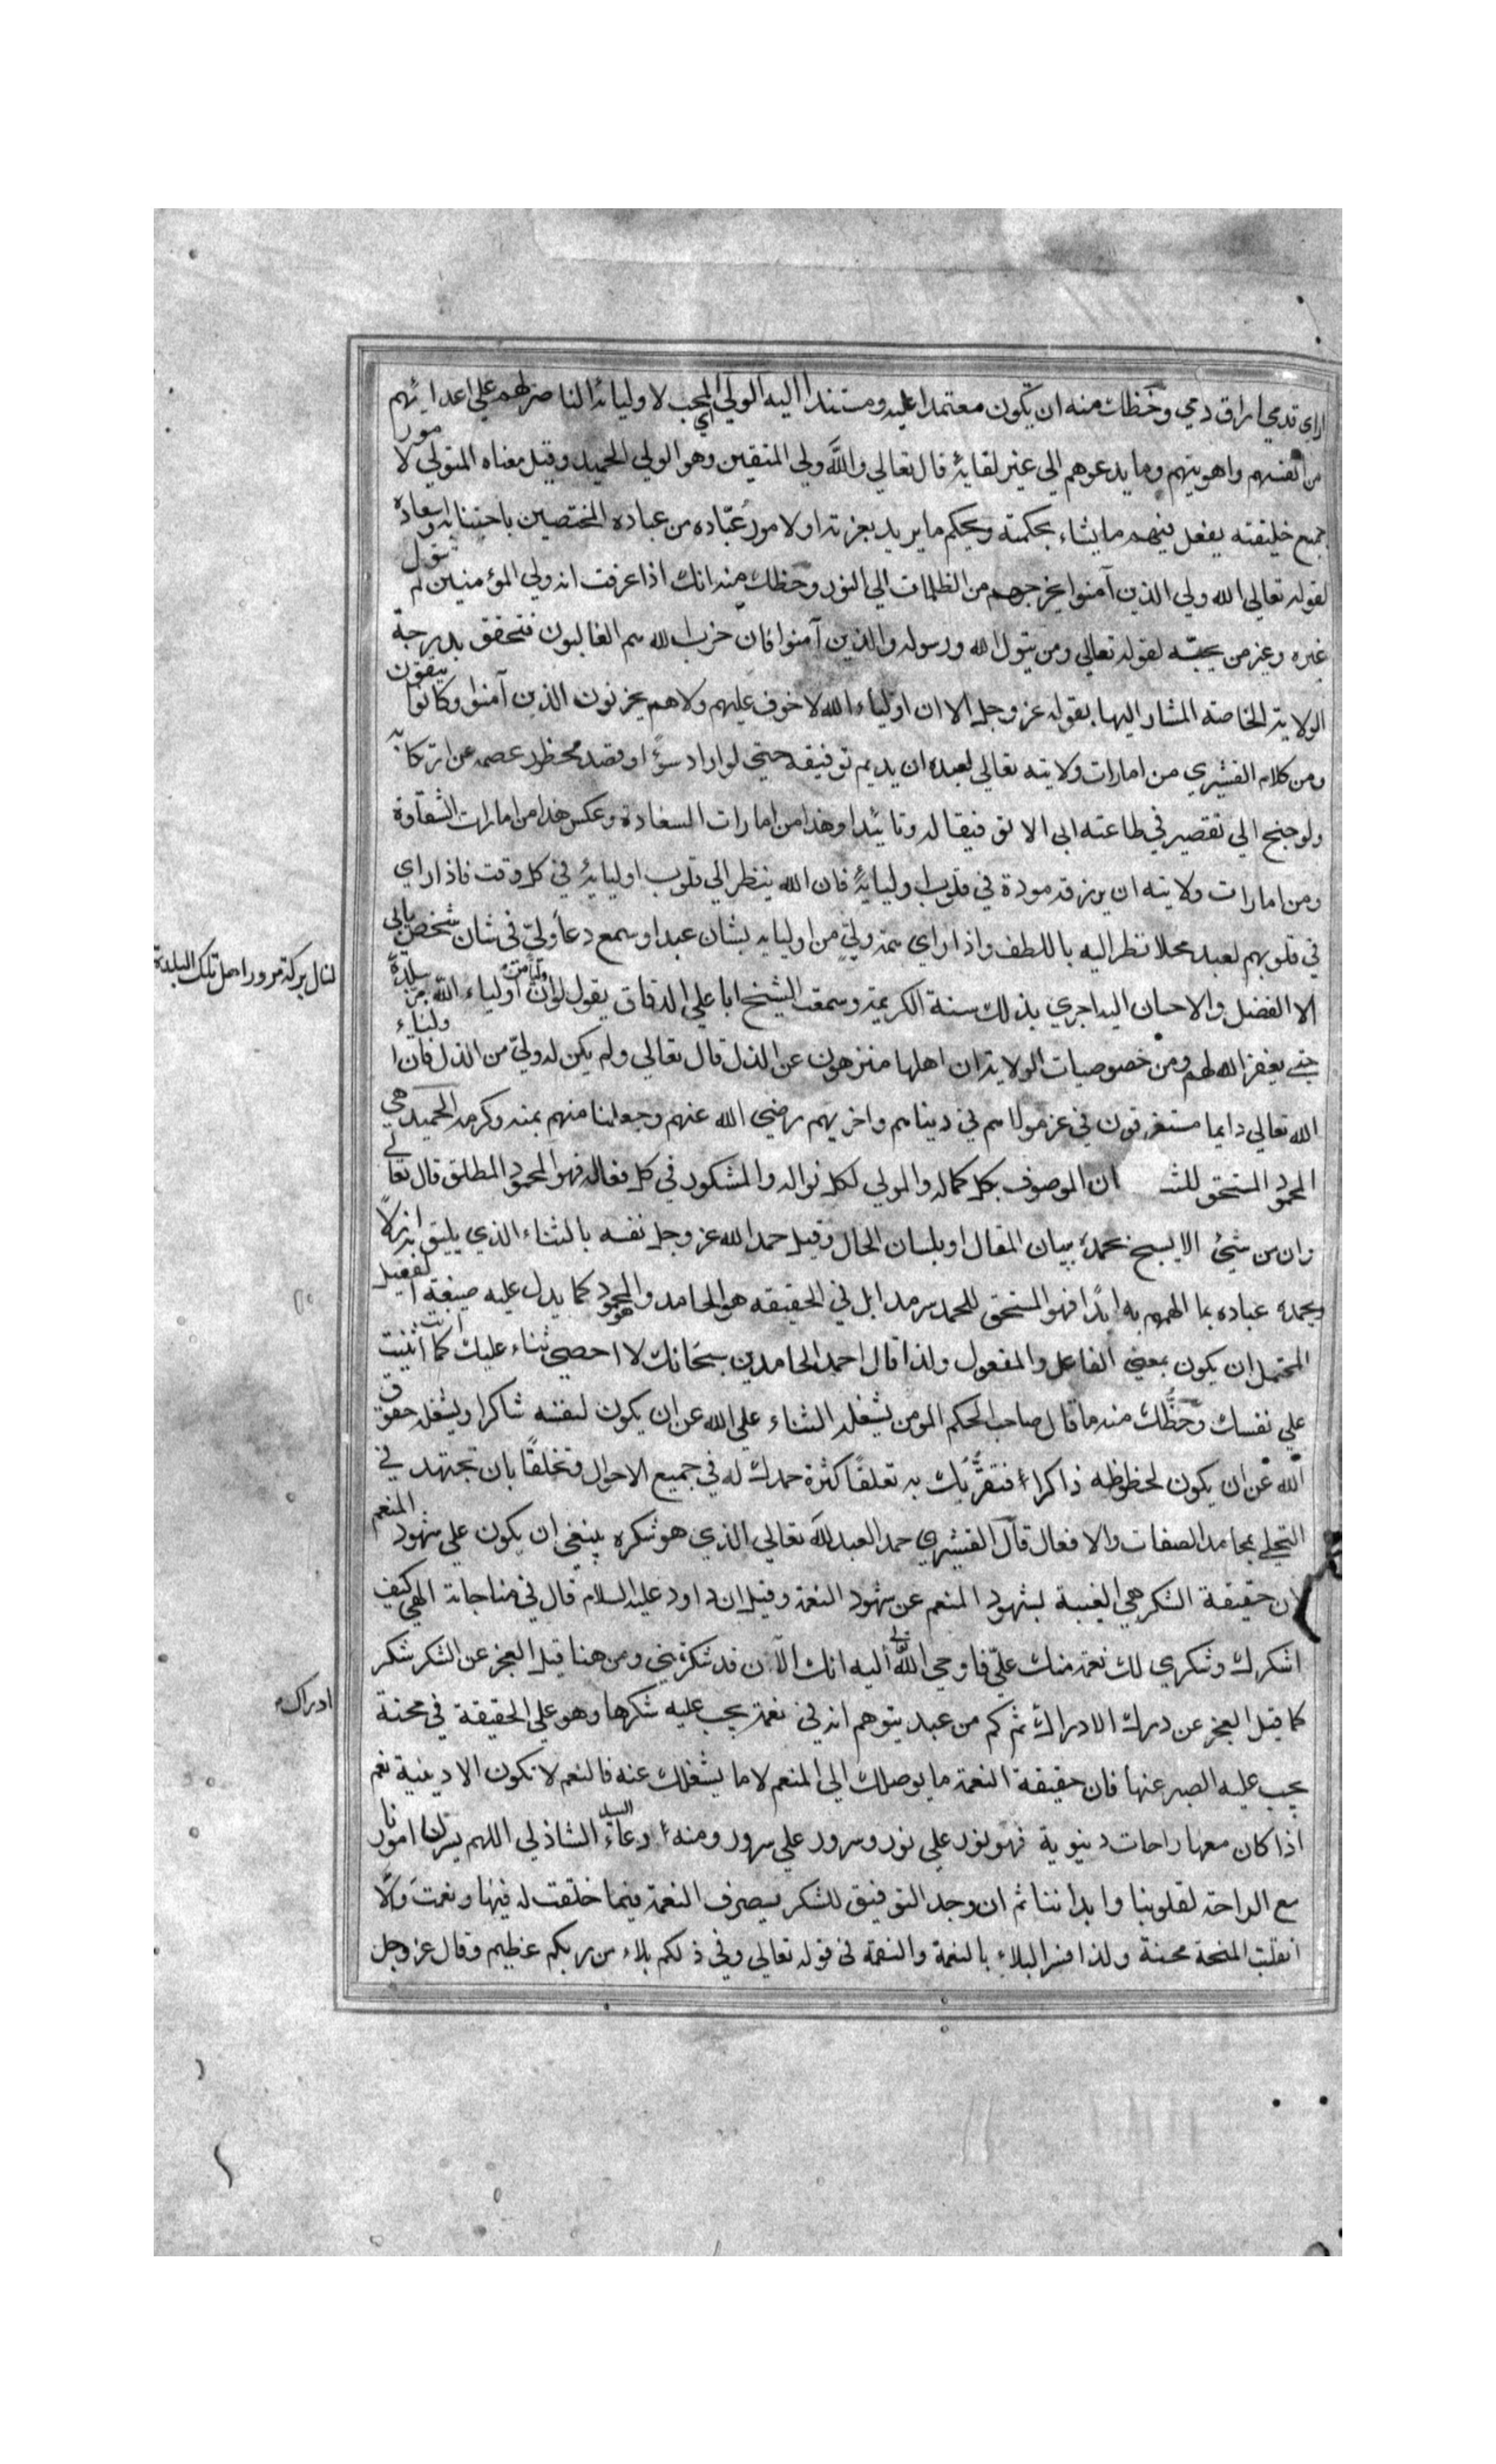 اراي قدمي اراق دمي وحظك منه ان تكون معتمدا عليه ومستندا اليه الولي اي المحب لاوليائه الناصر لهم علي اعدائهم
من انفسهم واهويتهم وما يدعوهم الي غير لقائه قال تعالي والله ولي المتقين وهو الولي الحميد وقيل معناه المتولي لامور
جميع خليقته يفعل فيهم ما يشاء بحكمته ويحكم ما يريد بعزته اولامور عباده من عباده المختصين باجتنابه واسعاده
لقوله تعالي الله ولي الذين آمنوا يخرجهم من الظلمات الي النور وحظك منه انك اذا عرفت انه ولي المؤمنين لم تتول
غيره وغير من يحبه لقوله تعالي ومن يتول الله ورسوله والذين آمنوا فان حزب الله هم الغالبون فتحقق بدرجة
الولاية الخاصة المشار اليها بقوله عز وجل الا ان اولياء الله لا خوف عليهم ولا هم يحزنون الذين آمنوا وكانوا يتقون
ومن كلام القشيري من امارات ولايته تعالي لعبده ان يديم توفيقه حتي لو اراد سوءً او قصد محظور عصمه عن ارتكابه
ولو جنح الي تقصير في طاعته ابي الا توفيقا له وتائيدا وهذا من امارات السعادة وعكس هذا من امارات الشقاوة
ومن امارات ولايته ان يرزقه مودة في قلوب اوليائه فان الله ينظر الي قلوب اوليائه في كل وقت فاذا راي
في قلوبهم لعبد محلا نظر اليه باللطف واذا راي همة ولي من اوليائه بشان عبد او سمع دعاء ولي في شان شخص يابي
الا الفضل والاحسان اليه اجري بذلك سنة الكريمة وسمعت الشيخ ابا علي الدقاق يقول لو ان وليا من اولياء الله مر ببلدة
لنال بركة مروره اهل تلك البلدة
حتي يغفر الله لهم ومن خصوصيات الولاية ان اهلها منزهون عن الذل قال تعالي ولم يكن له ولي من الذل فان اولياء
الله تعالي دايما مستغرقون في عز مولاهم في دنياهم واخريهم رضي الله عنهم وجعلنا منهم بمنه وكرمه الحميد هي
المحمود المستحق للثـ ان الموصوف بكل كماله والمولي لكل نواله والمشكور في كل فعاله فهو المحمود المطلق قال تعالي
وان من شيئ الا يسبح بحمده ببيان المقال او بلسان الحال وقيل حمد الله عز وجل نفسه بالثناء الذي يليق به ازلا
ويحمده عباده بما الهمهم به ابدًا فهو المستحق للحمد سرمدا بل في الحقيقه هو الحامد وهو المحمود كما يدل عليه صيغة الفعيل
المحتمل ان يكون بمعني الفاعل والمفعول ولذا قال احمد الحامدين سبحانك لا احصي ثناء عليك كما اثنيت انت
علي نفسك وحظك منه ما قال صاحب الحكم المومن يشغله الثناء علي الله عن ان يكون لنفسه شاكرا ويشغله حقوق
الله عن ان يكون لحظوظه ذاكرا فتقربك به تعلقا كثرة حمدك له في جميع الاحوال وتخلقًا بان تجتهد في
التجلي بمحامد الصفات والافعال قال القشيري حمد العبد لله تعالي الذي هو شكره ينبغي ان يكون علي شهود المنعم
لان حقيقة الشكر هي الغيبة بشهود المنعم عن شهود النعمة وقيل ان داود عليه السلام قال في مناجاته الهي كيف
اشكرك وشكري لك نعمة منك علي فاوحي الله الي اليه انك الآن قد شكرتني ومن هنا قيل العجز عن الشكر شكر
كما قيل العجز عن درك الادراك ثم كم من عبد يتوهم انه في نعمة يجب عليه شكرها وهو علي الحقيقة في محنة
ادراك
يجب عليه الصبر عنها فان حقيقة النعمة ما يوصلك الي المنعم لا ما يشغلك عنه فالنعم لا تكون الا دينية نعم
اذا كان معها راحات دنيوية فهو نور علي نور وسرور علي سرور ومنه دعاء السيد الشاذلي اللهم يسر لنا امورنا
مع الراحة لقلوبنا وابداننا ثم ان وجد التوفيق للشكر بصرف النعمة فيما خلقت له فيها ونعمت والا
انقلبت المنحة محنة ولذا فسر البلاء بالنعمة والنقمة في قوله تعالي وفي ذلكم بلاء من ربكم عظيم وقال عز وجل